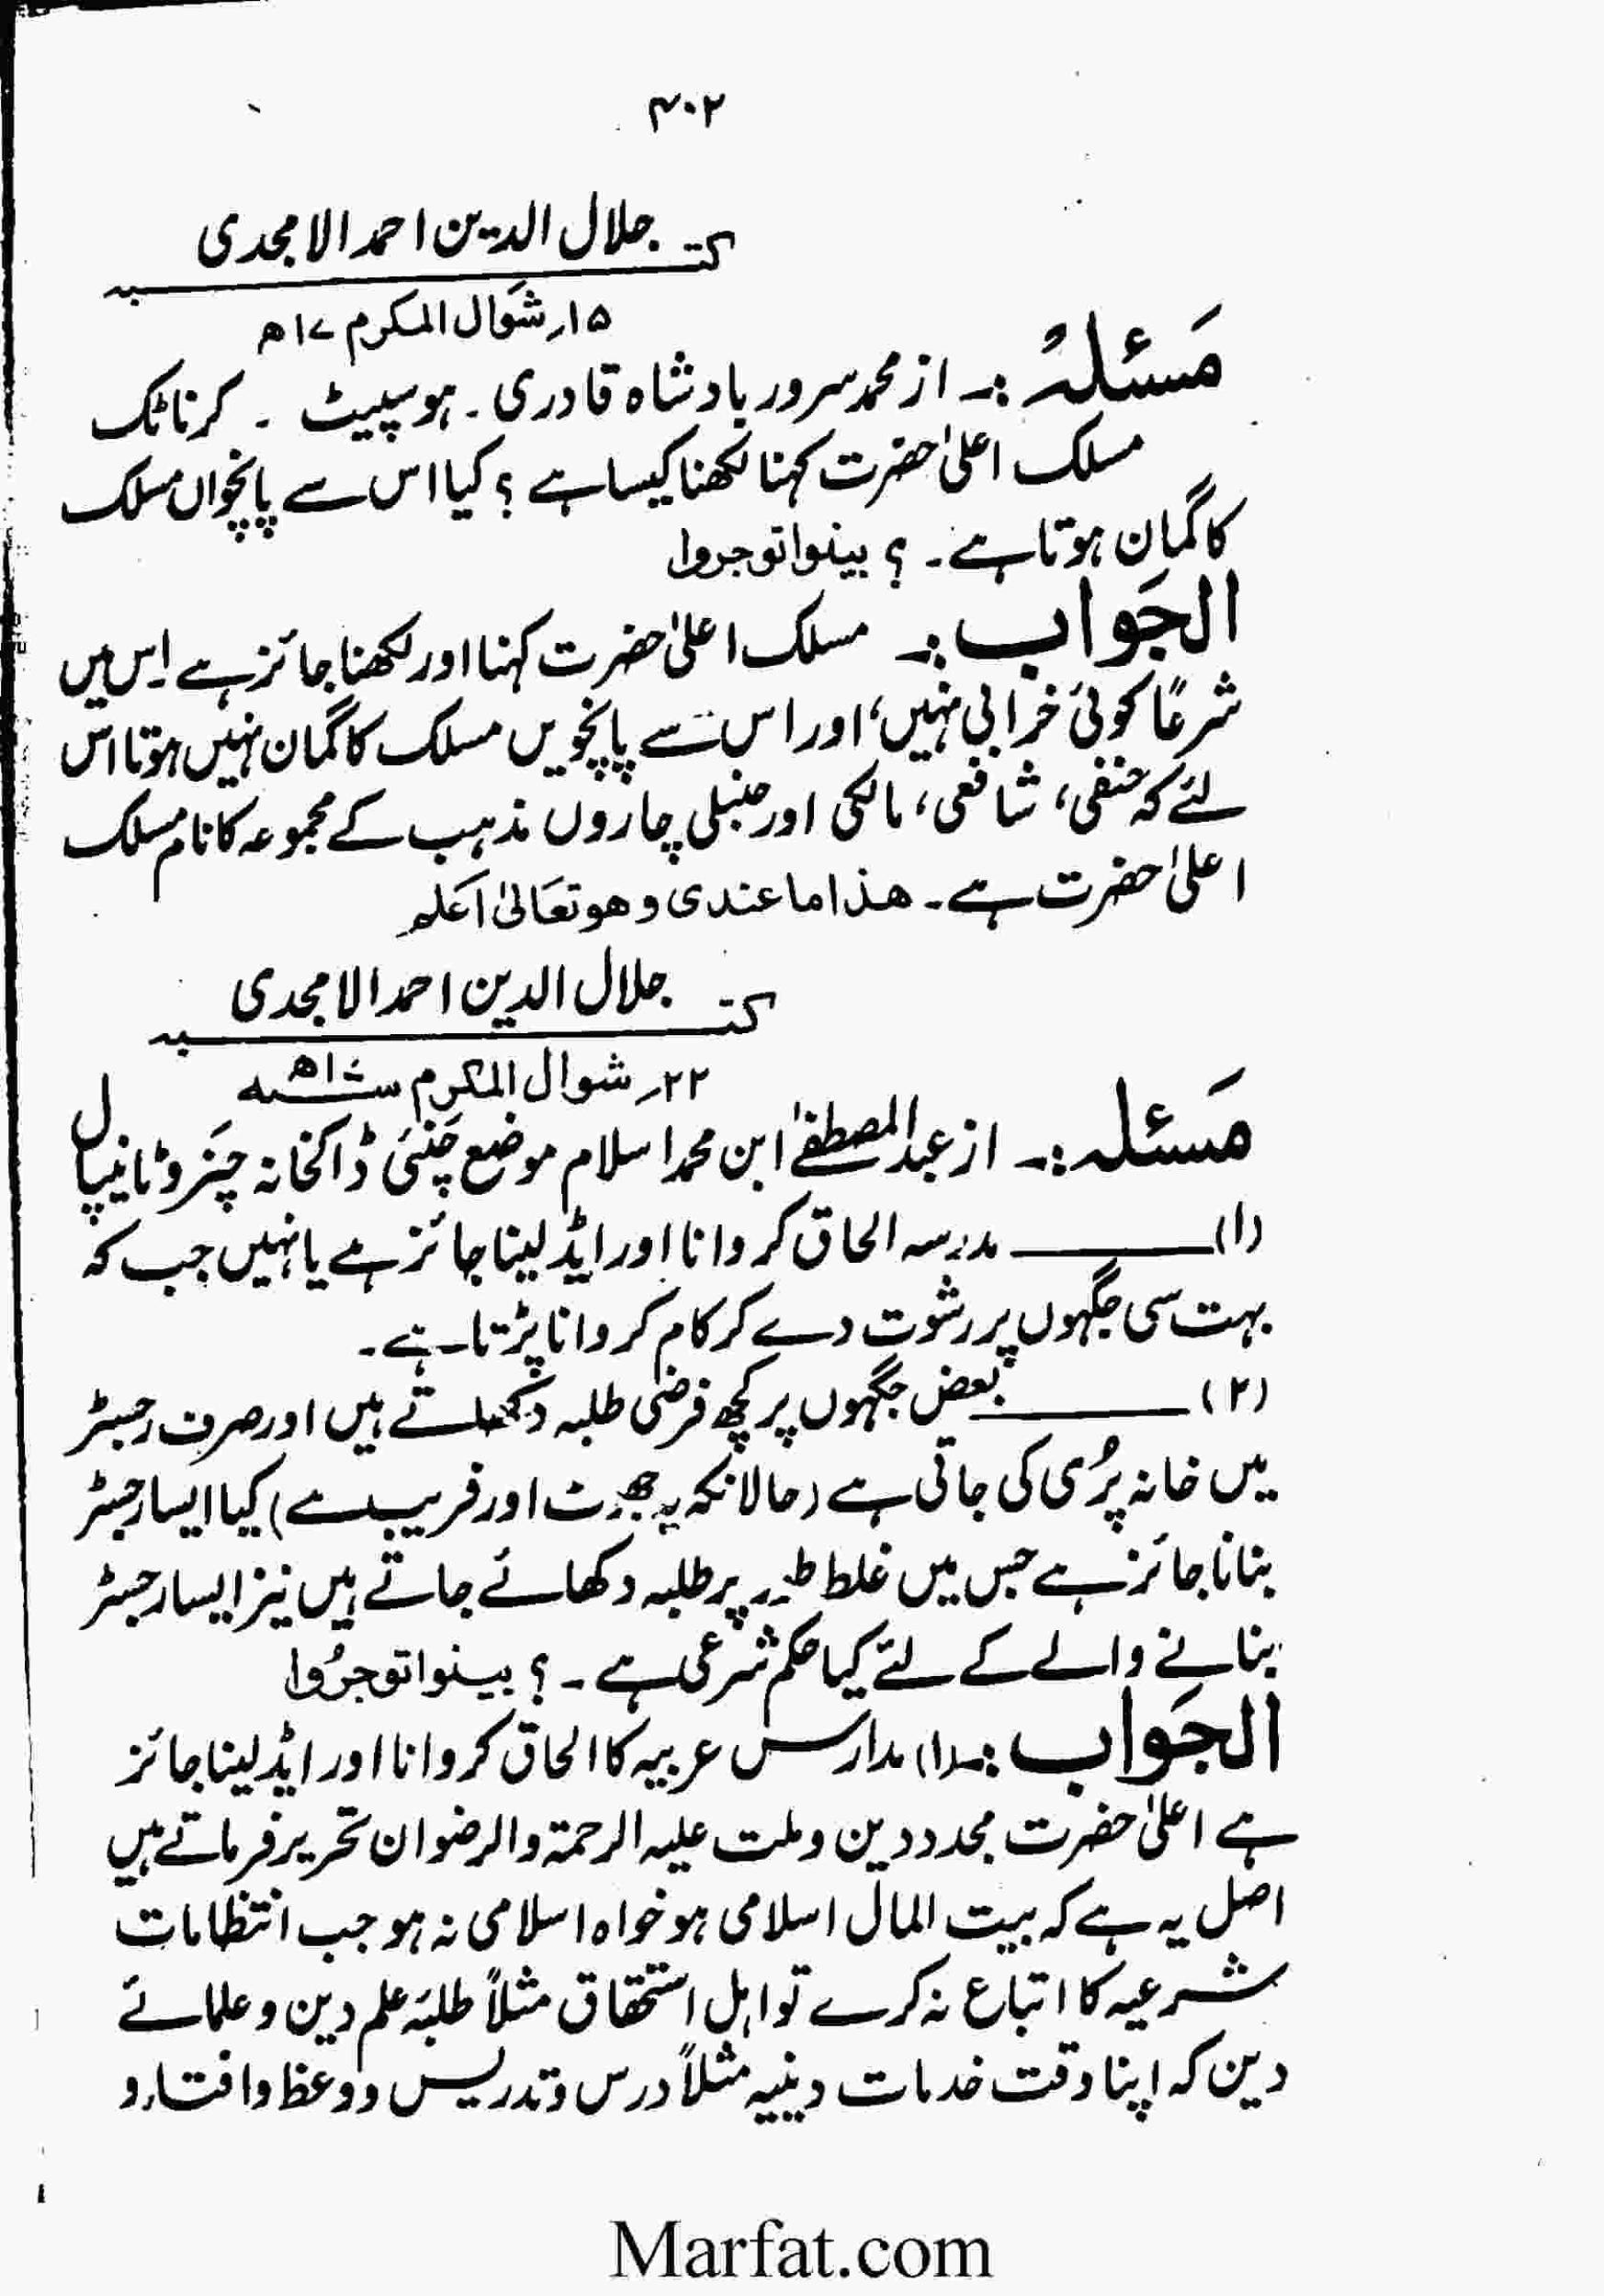 ۴۰۲
کتبہ جلال الدین احمد الامجدی
۱۵؍ شوال المکرم ۱۷ھ
مَسئلہ:۔ از محمد سرور بادشاہ قادری۔ ہوسپیٹ ۔ کرناٹک
مسلک اعلیٰ حضرت کہنا لکھنا کیسا ہے؟ کیا اس سے پانچواں مسلک
کا گمان ہوتا ہے۔؟ بینوا توجروا
الجَواب:۔ مسلک اعلیٰ حضرت کہنا اور لکھنا جائز ہے اِس میں
شرعًا کوئی خرابی نہیں، اور اس سے پانچویں مسلک کا گمان نہیں ہوتا اس
لئے کہ حنفی، شافعی، مالکی اور حنبلی چاروں مذہب کے مجموعہ کا نام مسلک
اعلیٰ حضرت ہے۔ ھذا ما عندی وھو تعَالیٰ اَعلم
کتبہ جلال الدین احمد الامجدی
۲۲؍ شوال المکرم سنہ ۱۷ھ
مَسئلہ:۔ از عبدالمصطفےٰ ابن محمد اسلام موضع چَنئی ڈاکخانہ چنروٹا نیپال
(۱) ــــــ مدرسہ الحاق کروانا اور ایڈ لینا جائز ہے یا نہیں جب کہ
بہت سی جگہوں پر رشوت دے کر کام کروانا پڑتا ہے۔
(۲) ــــــ بعض جگہوں پر کچھ فرضی طلبہ دکھلاتے ہیں اور صرف رجسٹر
میں خانہ پُری کی جاتی ہے (حالانکہ یہ جھوٹ اور فریب ہے) کیا ایسا رجسٹر
بنانا جائز ہے جس میں غلط طور پر طلبہ دکھائے جاتے ہیں نیز ایسا رجسٹر
بنانے والے کے لئے کیا حکم شرعی ہے۔؟ بینوا توجرُوا
الجَواب:۔ (۱) مدارس عربیہ کا الحاق کروانا اور ایڈ لینا جائز
ہے اعلیٰ حضرت مجدد دین و ملت علیہ الرحمۃ والرضوان تحریر فرماتے ہیں
اصل یہ ہے کہ بیت المال اسلامی ہو خواہ اسلامی نہ ہو جب انتظامات
شرعیہ کا اتباع نہ کرے تو اہل استحقاق مثلاً طلبۂ علم دین و علمائے
دین کہ اپنا وقت خدمات دینیہ مثلاً درس و تدریس و وعظ و افتاء و
Marfat.com